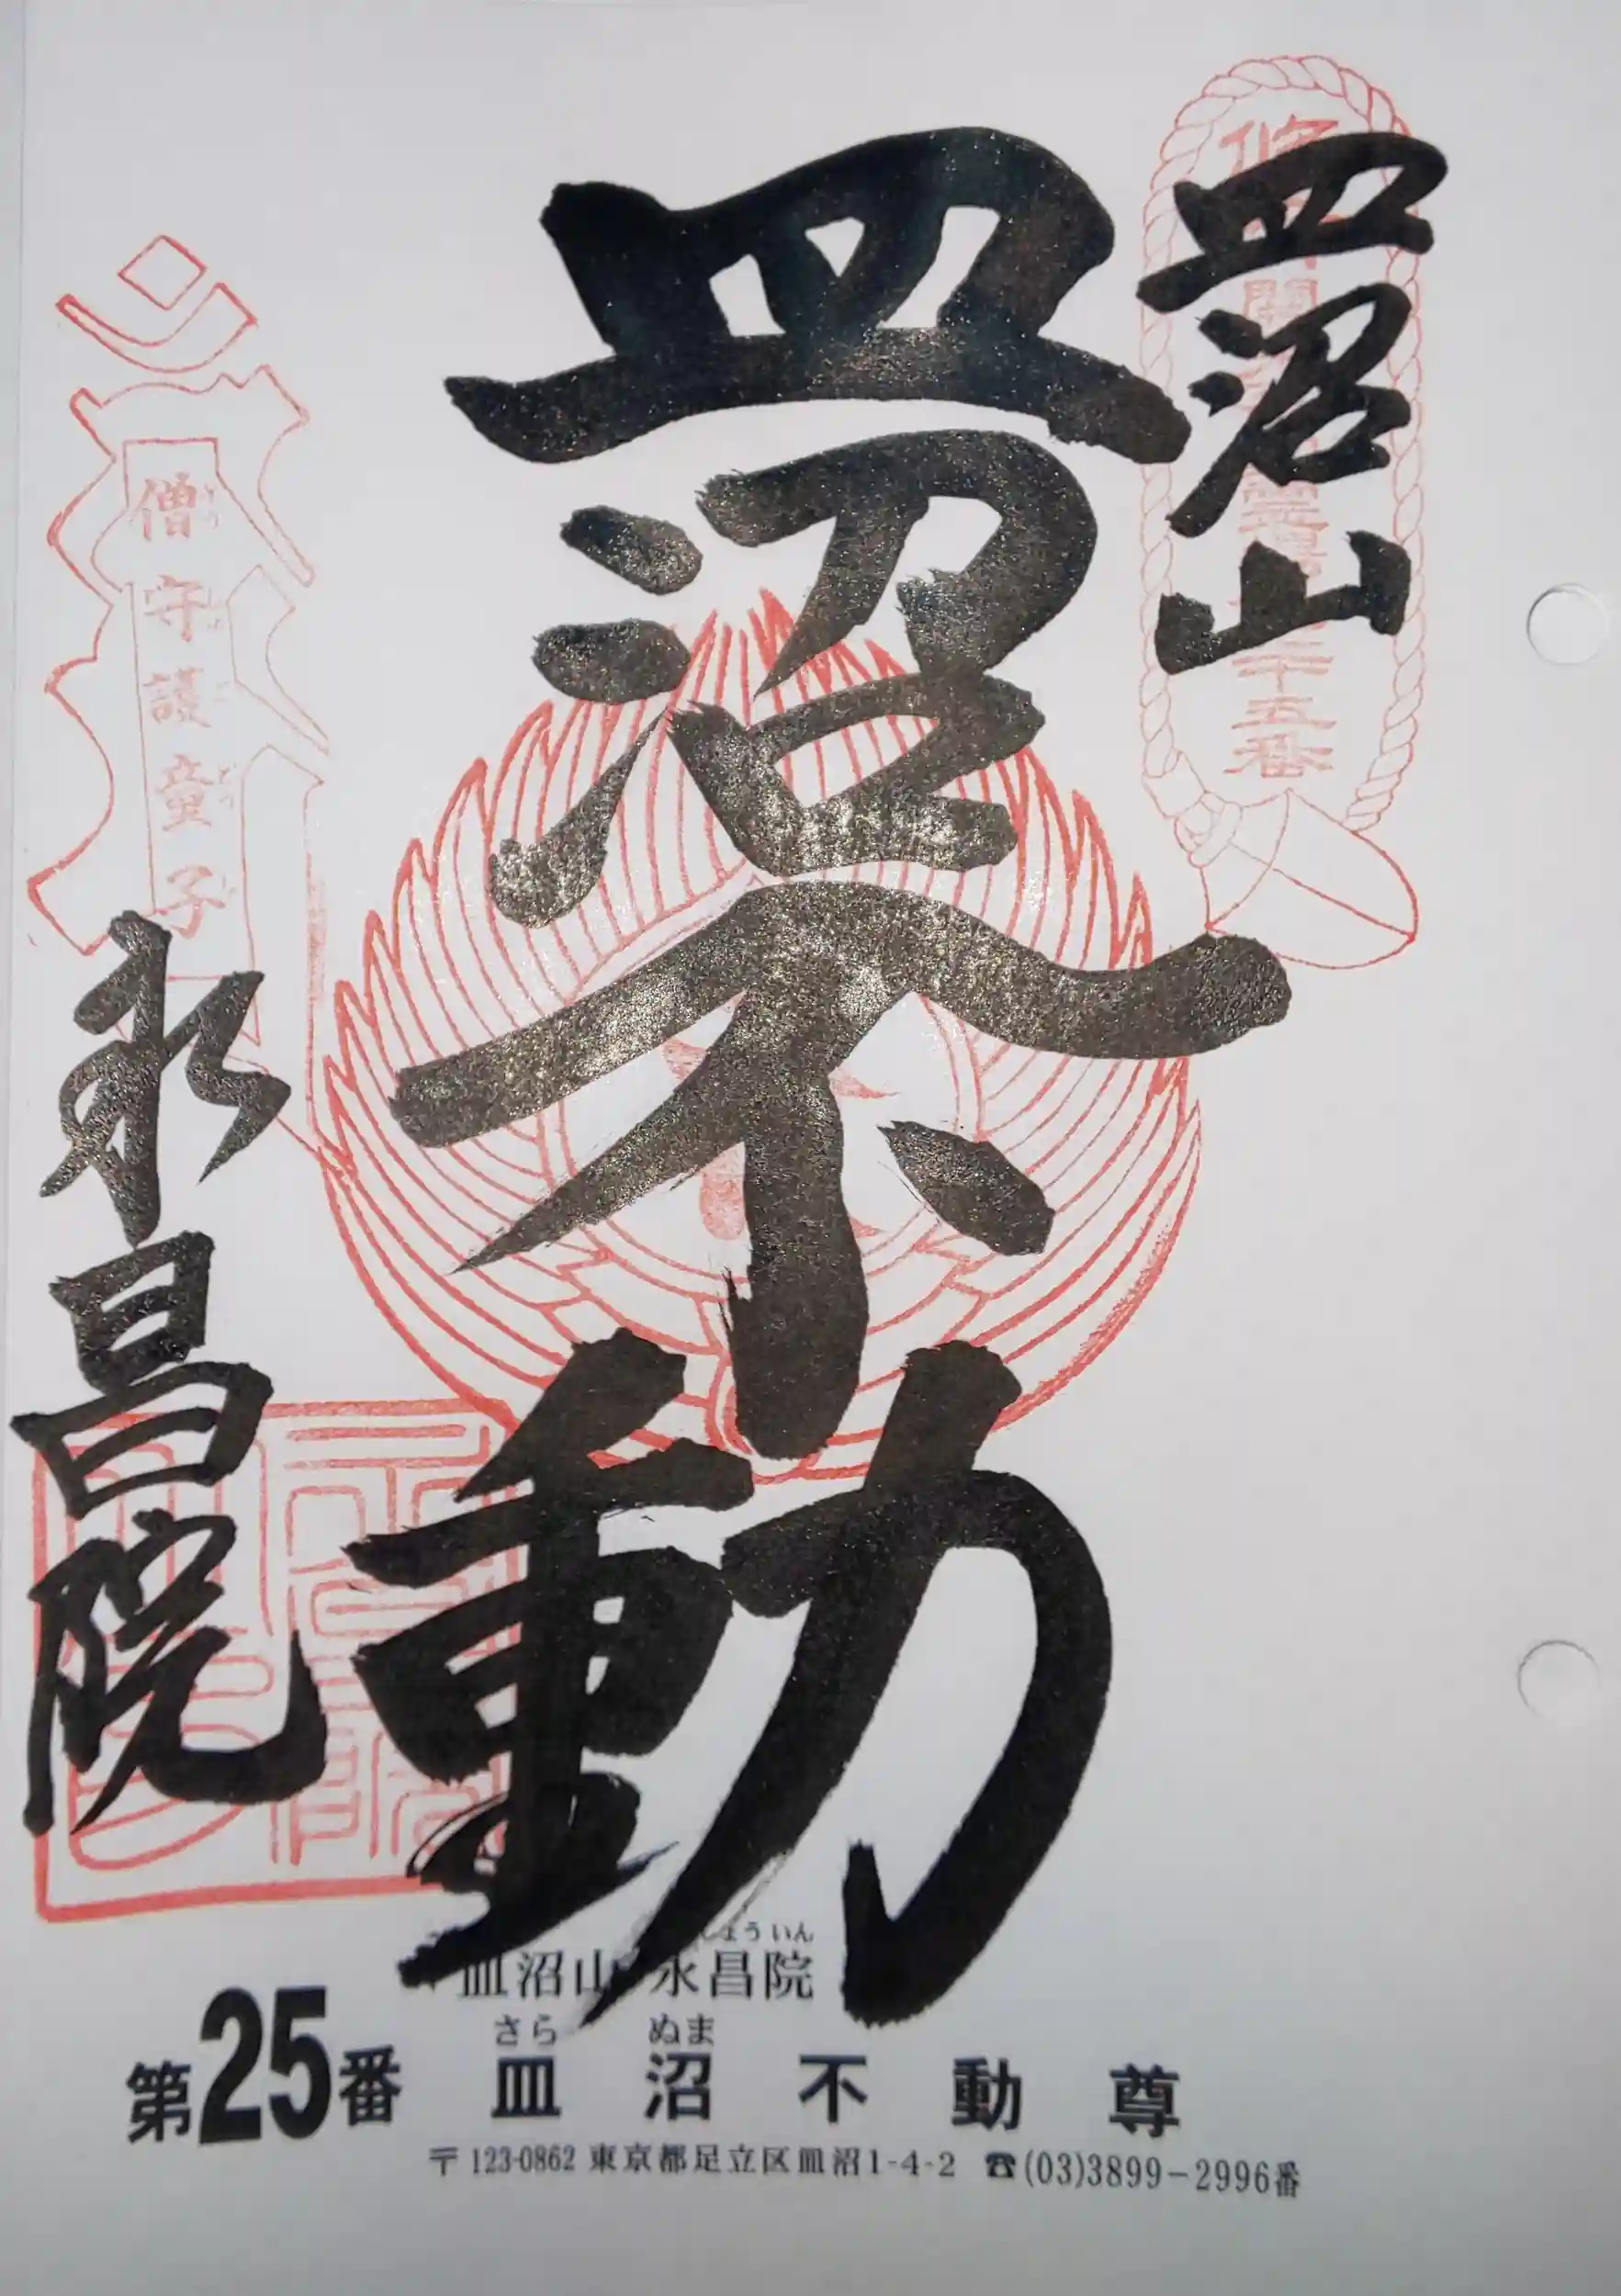 皿沼山
皿沼不動
永昌院
僧守護童子
二十五番
皿沼山 永昌院
さら ぬま
第25番 皿沼不動尊
〒123-0862 東京都足立区皿沼1-4-2 ☎(03)3899-2996番